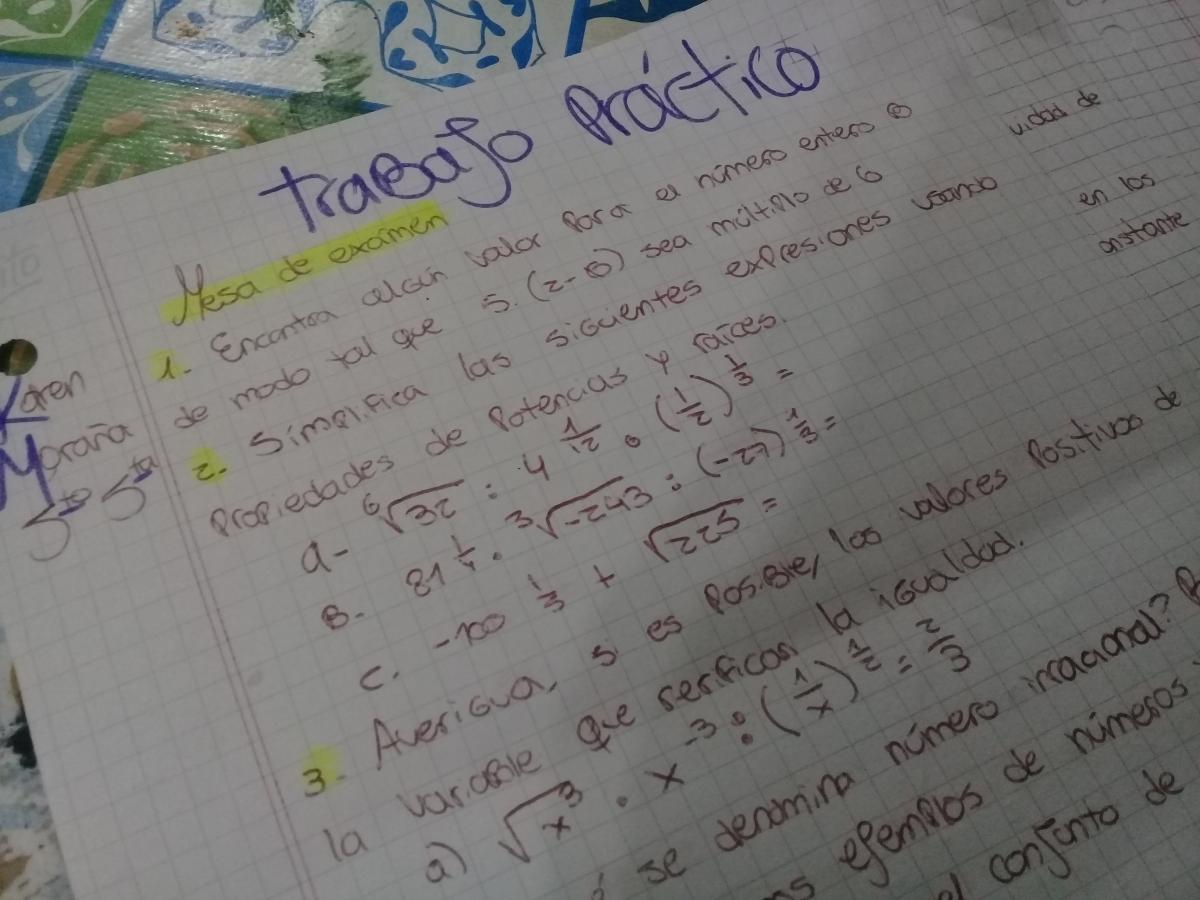 Trabajo Práctico
Mesa de exámen
1- Encontra algún valor para el número entero b
de modo tal que 5.(2-b) sea múltiplo de 6
2- Simplifica las siguientes expresiones usando
Propiedades de Potencias y raíces.
a- ⁶√32 : 4 ^1/2 . (1/2)^1/3 =
B- 81 ^1/4 . ³√-243 : (-27)^1/3 =
C. -100 ^1/3 + √225 =
3- Averigua, si es posible, los valores positivos de
la variable que verifican la igualdad.
a) √x³ . x ^-3 : (1/x)^1/2 = 2/3
se denomina número irracional?
ejemplos de números
el conjunto de
Karen
Moraña
5to 5ta
vidad de
en los
onstante